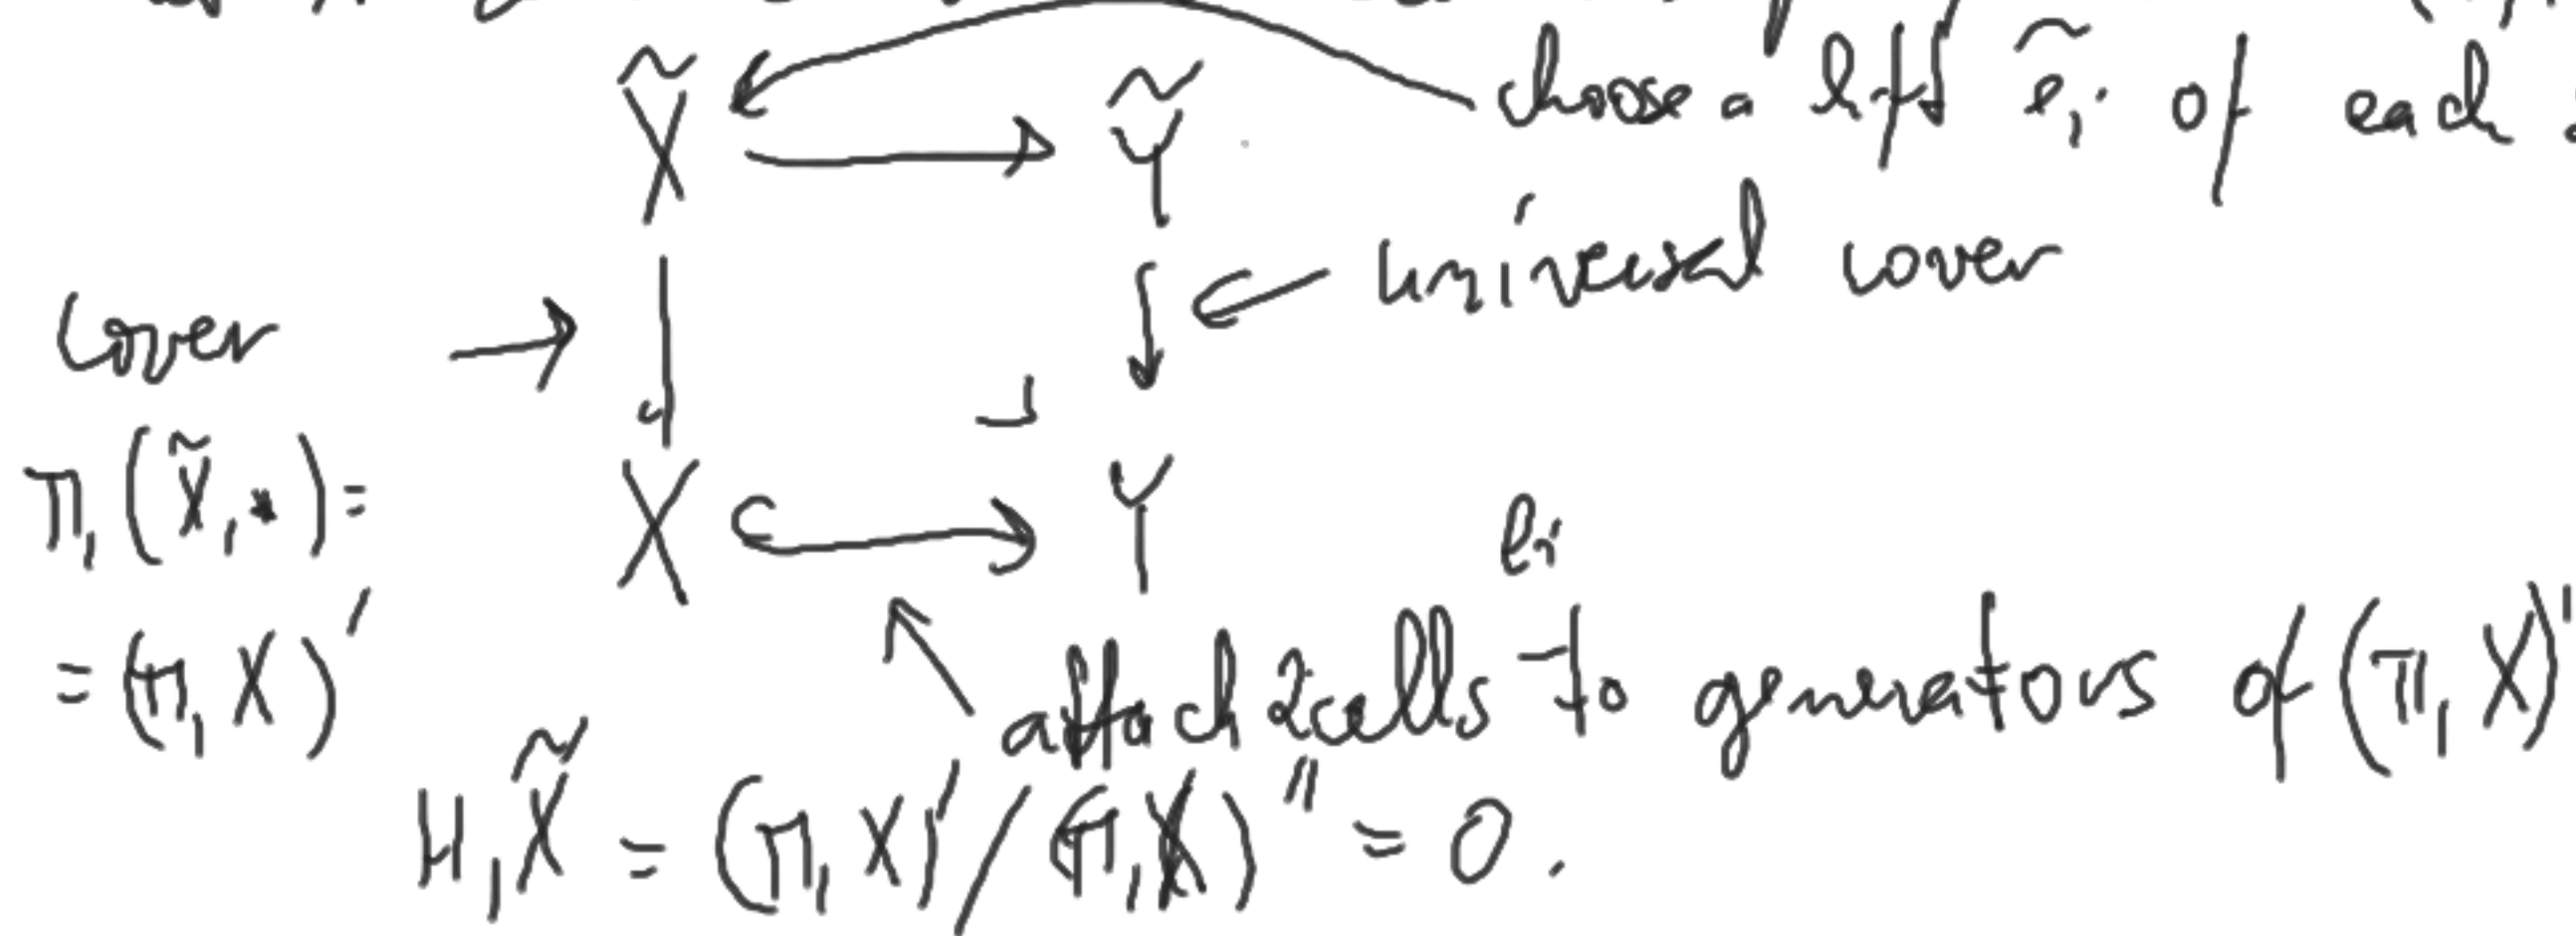 X̃ → Ỹ choose a lift ẽᵢ of each
universal cover
cover →
π₁(X̃,*)=
X ↪ Y eᵢ
=(π₁X)′
attach 2cells to generators of (π₁X)′
H₁X̃ = (π₁X)′/(π₁X)″ = 0.